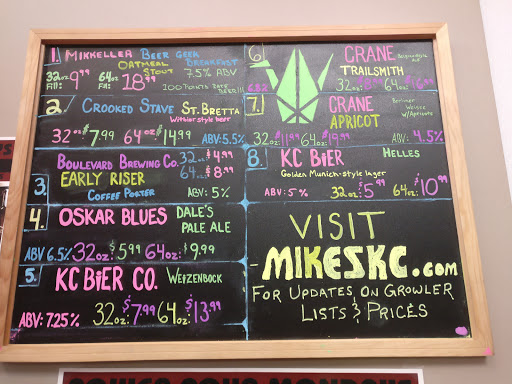 1 MIKKELLER BEER GEEK BREAKFAST
OATMEAL STOUT 7.5% ABV
32oz Fill: $9.99 64oz Fill: $18.99 100 POINTS RATE BEER!!!
2. CROOKED STAVE ST. BRETTA
Witbier style beer
32oz $7.99 64oz $14.99 ABV: 5.5%
3. BOULEVARD BREWING CO. 32oz: $4.99
EARLY RISER 64oz: $8.99
COFFEE PORTER ABV: 5%
4. OSKAR BLUES DALE'S PALE ALE
ABV 6.5% 32oz: $5.99 64oz: $9.99
5. KC BIER CO. WEIZENBOCK
ABV: 7.25% 32oz: $7.99 64oz: $13.99
6. CRANE
TRAILSMITH
32oz: 64oz:
7. CRANE Berliner Weisse w/Apricots
APRICOT
32oz: $11.99 64oz: $19.99 ABV: 4.5%
8. KC BIER HELLES
Golden Munich-style lager
ABV: 5% 32oz: $5.99 64oz: $10.99
VISIT
MIKESKC.com
FOR UPDATES ON GROWLER
LISTS & PRICES